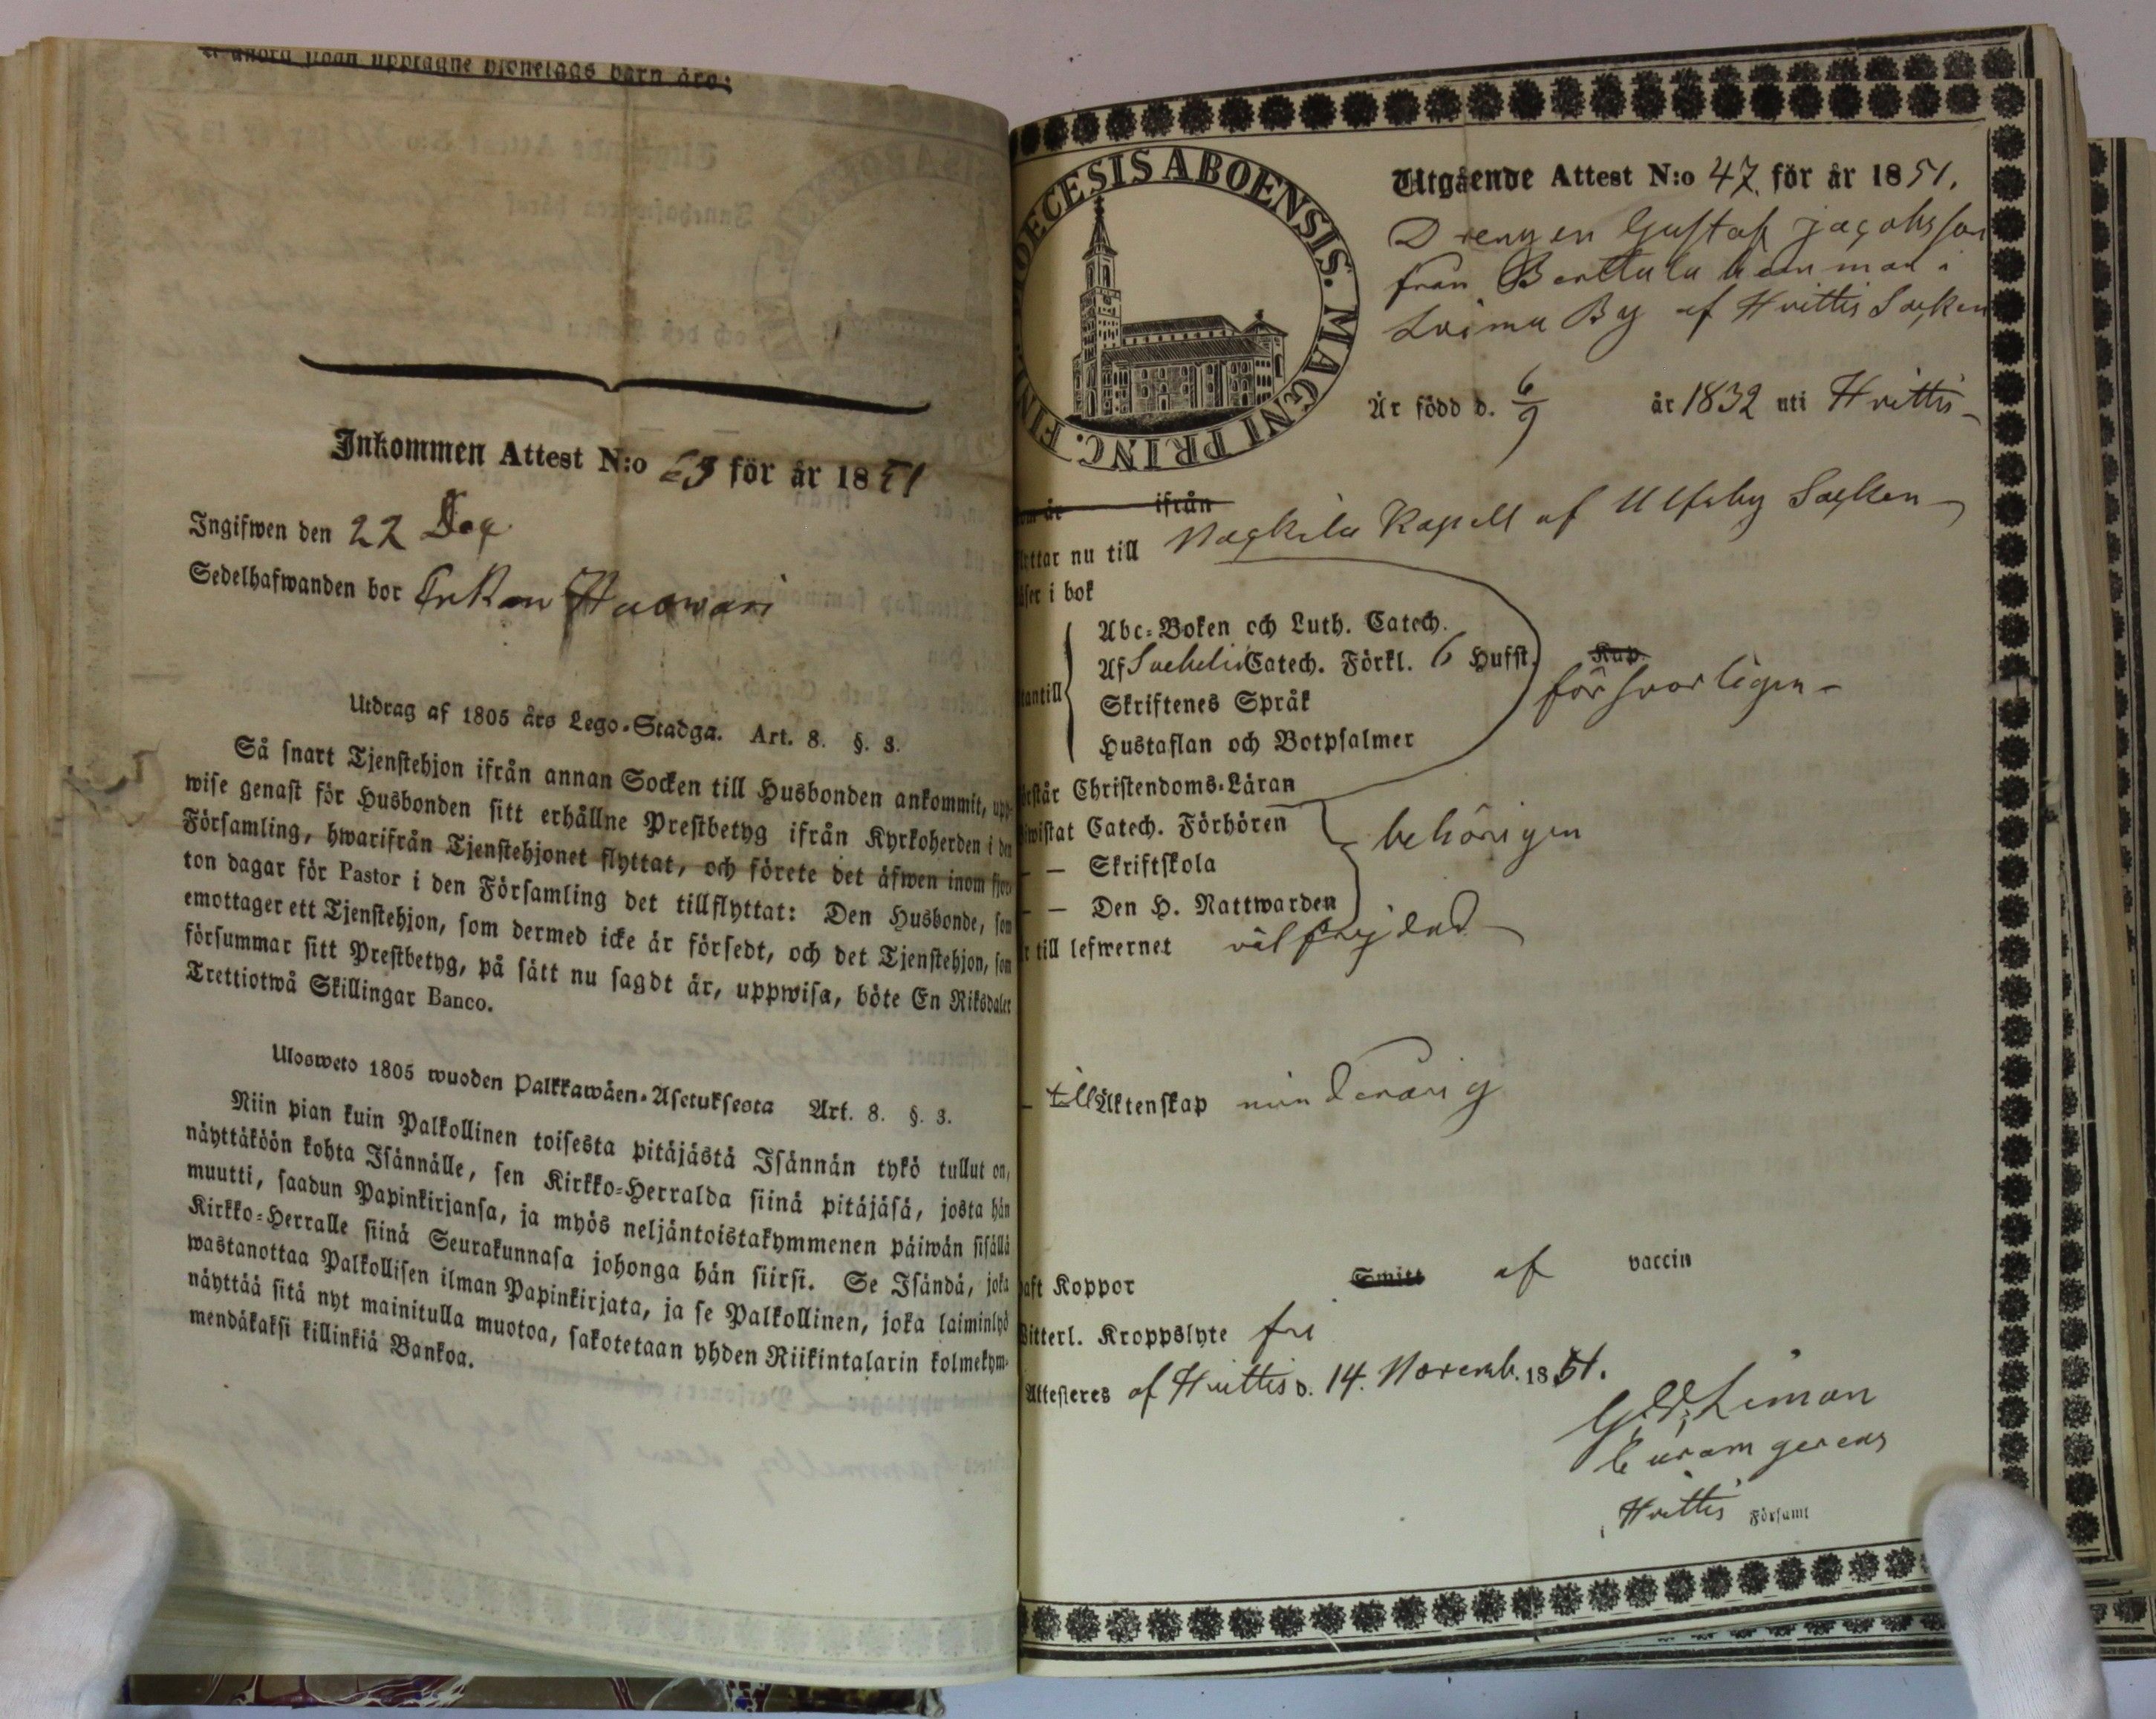 Inkommen Attest N:o 63 för år 1851
Ingifwen den 22
Sedelhafwanden bor
Utdrag af 1805 års Lego-Stadga. Art. 8. §. 3.
Så snart Tjenstehjon ifrån annan Socken till Husbonden ankommit, upp-
wise genast för Husbonden sitt erhållne Prestbetyg ifrån Kyrkoherden i den
Församling, hwarifrån Tjenstehjonet flyttat, och förete det äfwen inom fjor-
ton dagar för Pastor i den Församling det tillflyttat: Den Husbonde, som
emottager ett Tjenstehjon, som dermed icke är försedt, och det Tjenstehjon, som
försummar sitt Prestbetyg, på sätt nu sagdt är, uppwisa, böte En Riksdaler
Trettiotwå Skillingar Banco.
Ulosweto 1805 wuoden Palkkawäen-Asetuksesta Art. 8. §. 3.
Niin pian kuin Palkollinen toisesta pitäjästä Isännän tykö tullut on,
näyttäköön kohta Isännälle, sen Kirkko-Herralda siinä pitäjäsä, josta hän
muutti, saadun Papinkirjansa, ja myös neljäntoistakymmenen päiwän sisällä
Kirkko-Herralle siinä Seurakunnasa johonga hän siirsi. Se Isändä, joka
wastanottaa Palkollisen ilman Papinkirjata, ja se Palkollinen, joka laiminlyö
näyttää sitä nyt mainitulla muotoa, sakotetaan yhden Riikintalarin kolmekym-
mendäkaksi killinkiä Bankoa.
DIOECESIS ABOENSIS. MAGNI PRINC. FIN
Utgående Attest N:o 47. för år 1851.
Drengen Gustaf Jacobsson
från Berttula hemman i
Loima By af Hvittis Socken
Är född d. 6/9 år 1832 uti Hvittis
om är ifrån
lyttar nu till Kapell af Ulfsby Socken
äser i bok
Abc-Boken och Luth. Catech.
Af Catech. Förkl. 6 Hufst. Kap.
försvarligen
antill Skriftenes Språk
Hustaflan och Botpsalmer
örstår Christendoms-Läran
iwistat Catech. Förhören behörigen
— — Skriftskola
— — Den H. Nattwarden
r till lefwernet väl frejdad
— till Äktenskap minderårig
aft Koppor Smitt af vaccin
Witterl. Kroppslyte fri
Attesteras af Hvittis d. 14. Novemb. 1851.
Liman
Curam gerens
i Hvittis Församl